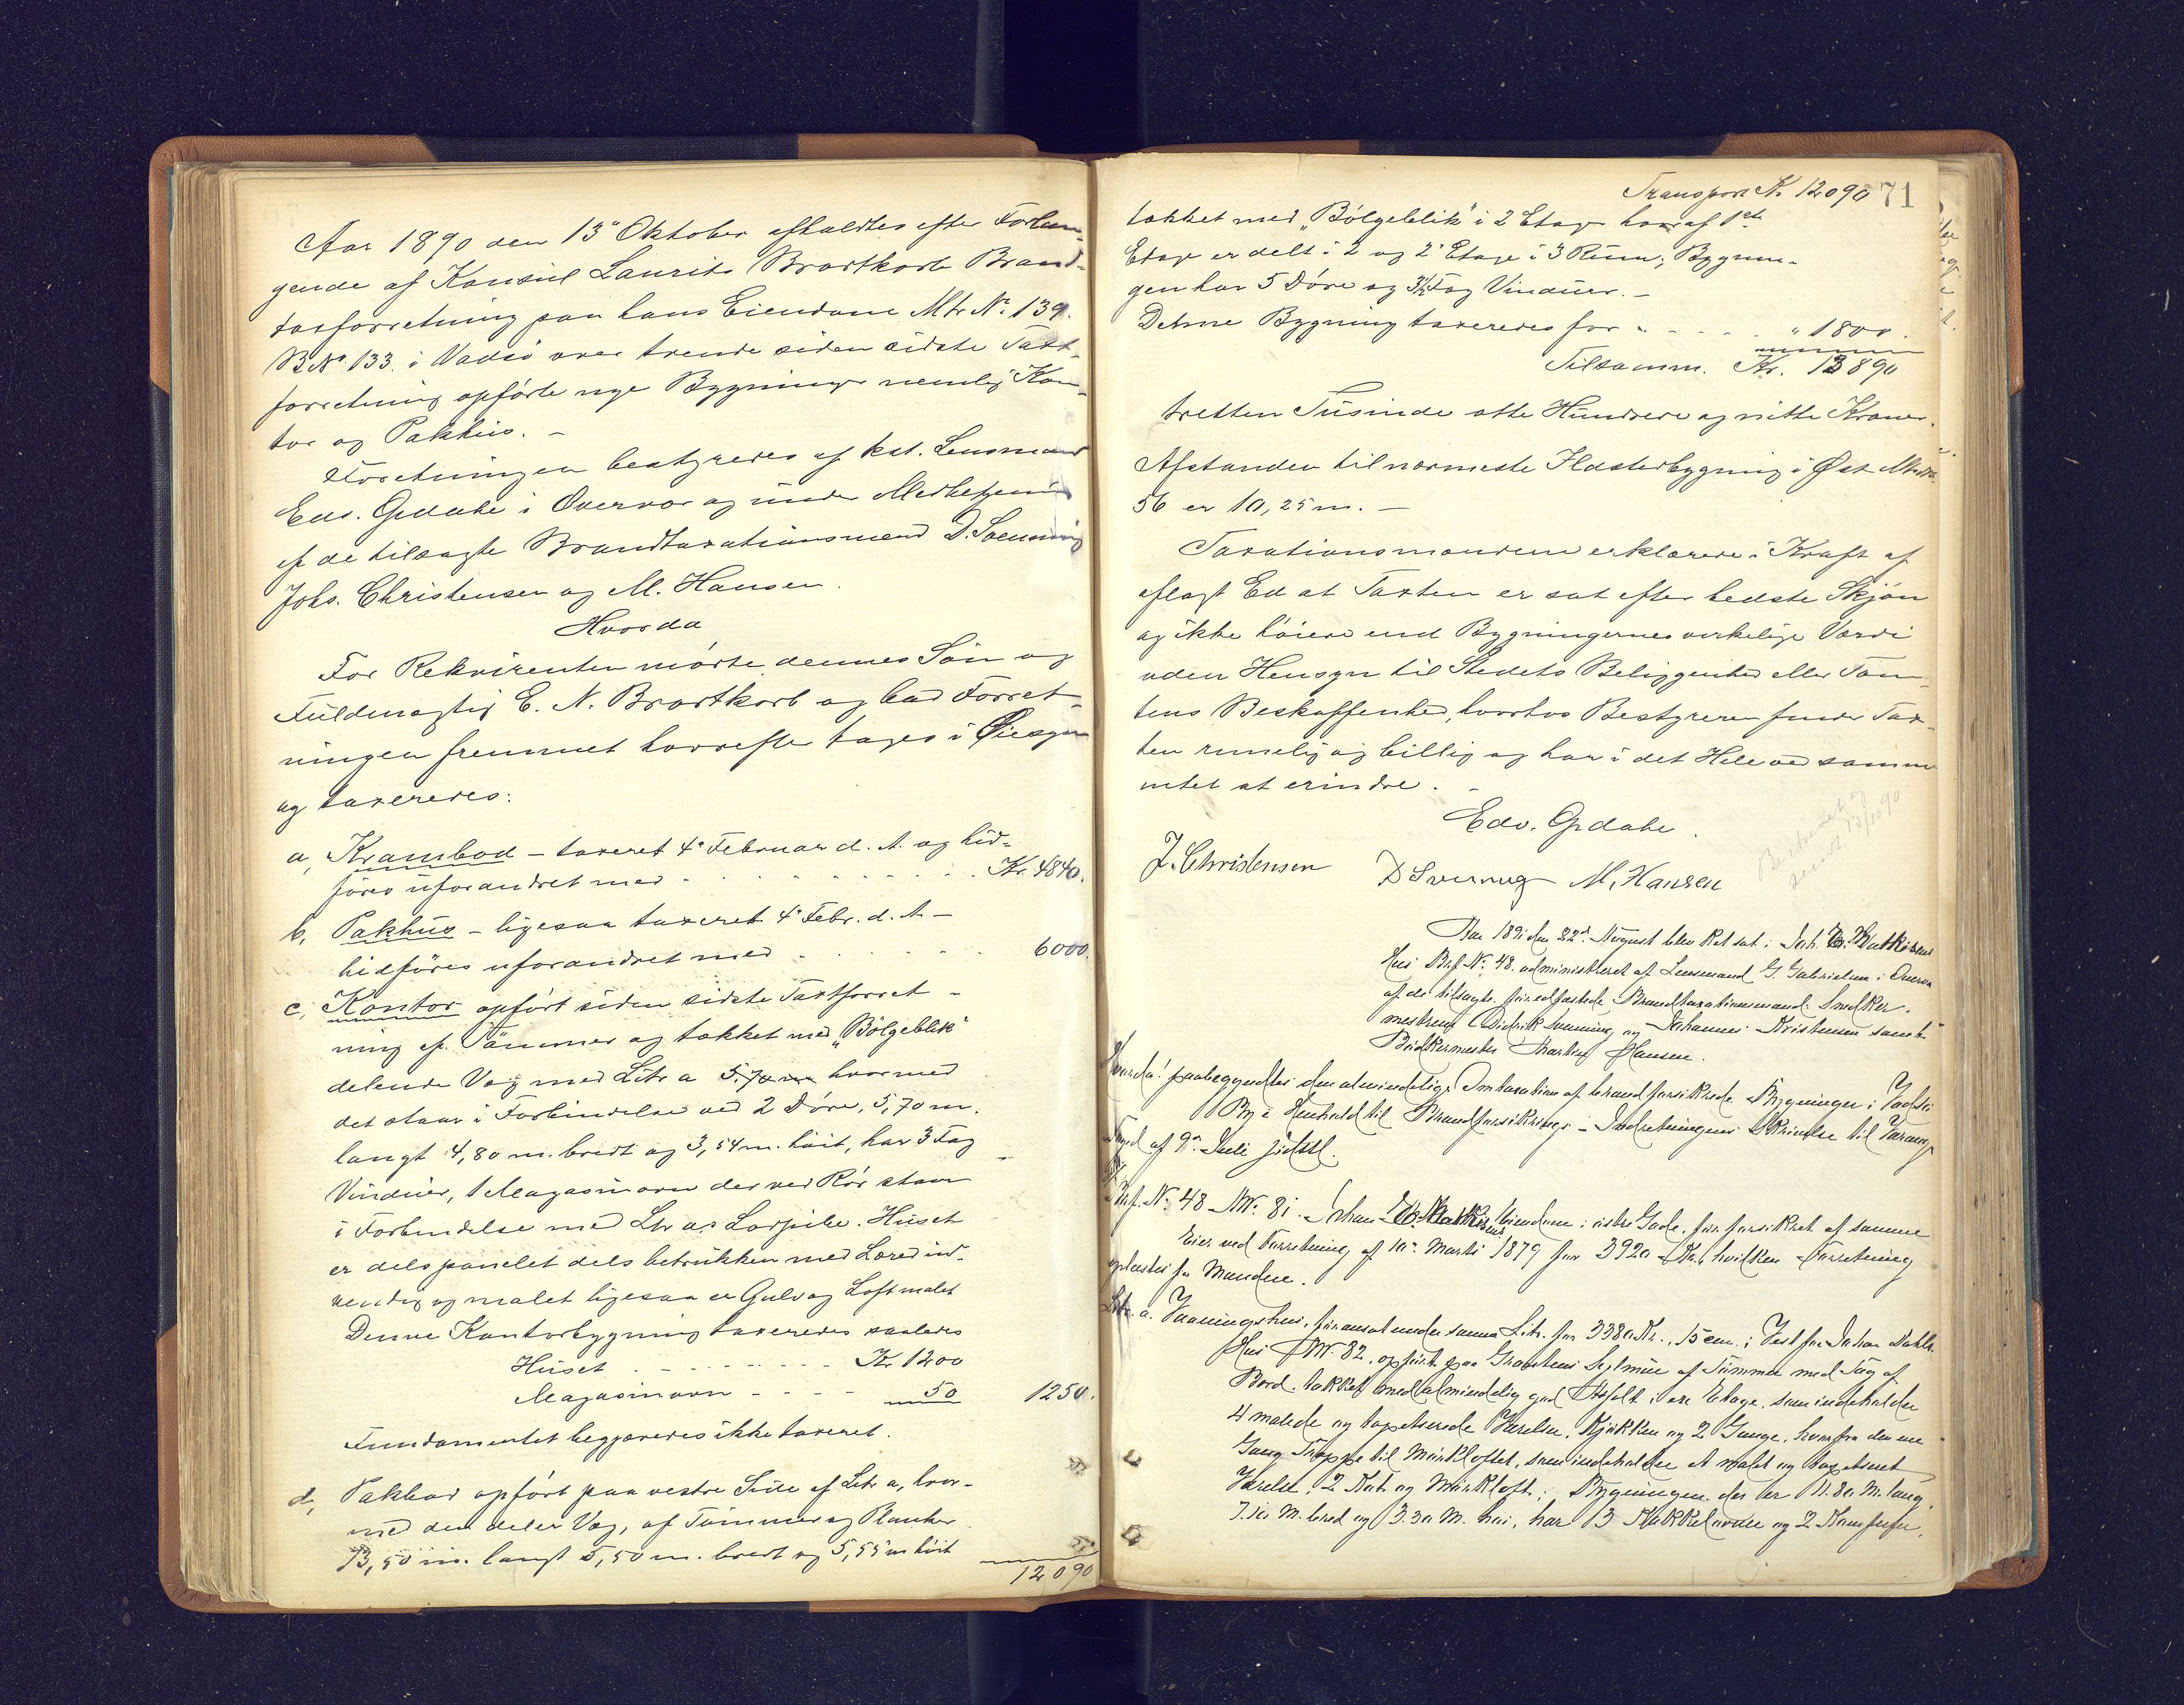 Aar 1890 den 13de Oktober afholdtes efter Forlan-
gende af Konsul Laurits Brodtkorb Brand-
taxforretning paa hans Eiendom Mtr No. 139.
B. No. 133. i Vadsö over trende siden sidste Taxt-
forretning opförte nye Bygninger nemlig Kon-
tor og Pakhus. –
Forretningen bestyredes af kst. Lensmand
Edv. Opdahl i Overvær og under Medbetjening
af de tilsagte Brandtaxationsmænd D. Svenning
Johs. Christensen og M. Hansen.
Hvorda
For Rekvirenten mödte dennes Sön og
Fuldmægtig E. N. Brodtkorb og bad Forret-
ningen fremmet hvorefter toges i Øiesyn
og taxeredes:
a, Krambod – taxeret 4de Februar d. A. og hid-
föres uforandret med - - - - - Kr. 4840.
b, Pakhus – ligesaa taxeret 4de Febr. d. A. –
hidföres uforandret med - - - - - 6000.
c, Kontor opfört siden sidste Taxtforret-
ning af Tömmer og tækket med „Bölgeblik“
delende Væg med Litr a 5.70 m hvormed
det staar i Forbindelse ved 2 Döre, 5,70 m.
langt 4,80 m. bredt og 3,54 m. höit, har 3 Fag
Vinduer, 1 Magasinovn der ved Rör staar
i Forbindelse med Litr as Skorstenspibe. Huset
er dels panelet dels betrukken med Lærred ind-
vendig og malet ligesaa er Gulv og Loft malet
Denne Kontorbygning taxeredes saaledes
Huset - - - - - - - Kr 1200
Magasinovn - - - - 50 1250.
Fundamentet begjæredes ikke taxeret.
d, Pakbod opfört paa vestre Side af Litr a, hvor-
med den deler Væg, af Tömmer og Planker
13,50 m. langt 5,50 m. bredt og 5,55 m höit
12090
Transport Kr. 12090 71
tækket med „Bölgeblik“ i 2 Etager hvoraf 1ste
Etage er delt i 2 og 2den Etage i 3 Rum; Bygnin-
gen har 5 Döre og 3½ Fag Vinduer. –
Denne Bygning taxeredes for - - - - " 1800.
Tilsamm. Kr. 13890
tretten Tusinde otte Hundrede og nitti Kroner.
Afstanden til nærmeste Ildstedbygning i Øst Mtr No.
56 er 10,25 m. –
Taxationsmændene erklærede i Kraft af
aflagt Ed at Taxten er sat efter bedste Skjön
og ikke höiere end Bygningernes virkelige Værdi
uden Hensyn til Stedets Beliggenhed eller Tom-
tens Beskaffenhed, hvorhos Bestyreren fandt Tax-
ten rimelig og billig og har i det Hele ved samme
intet at erindre. –
Edv. Opdahl.
J. Christensen D Svenning M. Hansen
Beskrevet og
sendt 13/11 90
Aar 1891 den 22de August blev Ret sat i Joh.
Hus Brf. No. 48. administreret af Lensmand G. Gabrielsen i Overvær
af de tilsagte forudfæstede Brandtaxationsmænd: Snedker-
mestrene Didrik Svenning og Johannes Kristensen samt
Bödkermester Martin Hansen.
Hvorda! paabegyndtes den almindelige Omtaxation af brandforsikrede Bygninger i Vadsö
By i Henhold til Brandforsikrings-Indretningens Skrivelse til Varanger
Fogd af 9de Juli sidstl.
Brf. No. 48 M No. 81. Johan Eiendom i östre Gade. för forsikret af samme
Eier ved Forretning af 10de Marts 1879 for 3920 Kr., hvilken Forretning
oplæstes for Mændene.
Litr. a. Vaaningshus, för ansat under samme Litr. for 3380 Kr., 15 cm. i Vest fra Johan Dahls
Hus MNo. 82, opfört paa Graastens Sylmur af Tömmer med Tag af
Bord tækket med almindelig god Asfalt i een Etage, som indeholder
4 malede og tapetserede Værelser, Kjökken og 2 Gange, hvorfra den ene
Gang Trappe til Mörkloftet, som indeholder et malet og tapetseret
Værelse, 2 Kot og Mörkloft; Bygningen der er 11.80 M. lang,
7.50 M. bred og 3.30 M. höi, har 3 Kakkelovne og 2 Komfurer,